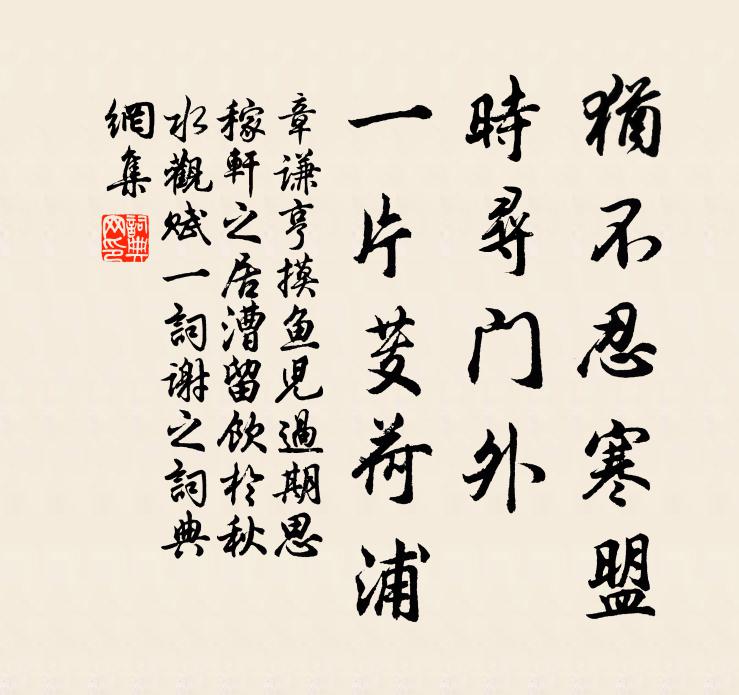 猶不忍寒盟
時尋門外
一片芰荷浦
章謙亨摸鱼児過期思
稼軒之居漕留飲於秋
水觀賦一詞谢之詞典
網集
詞典
网印